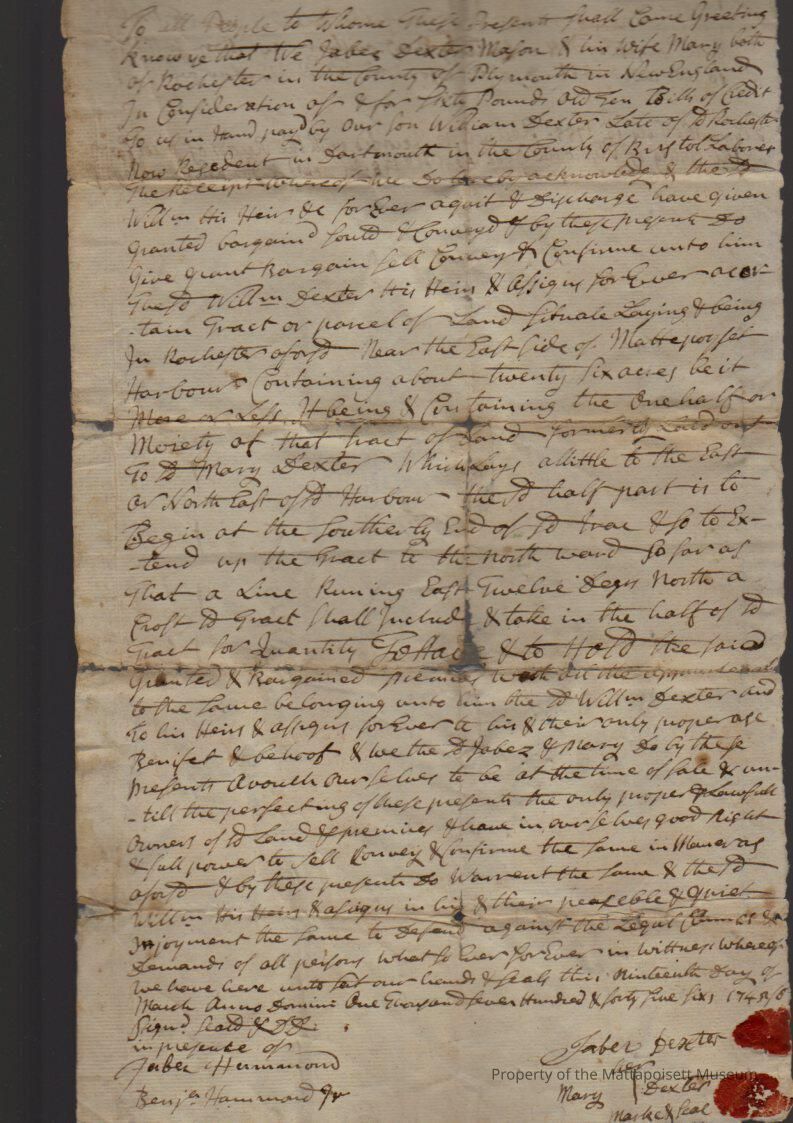 To all People to Whome These Presents shall Come Greeting
Know ye that We Jabez Dexter Mason & his Wife Mary both
of Rochester in the County of Plymouth in New England
In Consideration of & for Sixty Pounds Old Ten Bills of Credit
To us in hand pay'd by Our Son William Dexter Late of sd Rochestr
Now Resedent in Dartmouth in the County of Bristol Laborer
The Receipt whereof we Do hereby acknowledg & the sd
Willm His Heir &c for Ever aquit & Discharge have given
Granted bargain'd sould & Convey'd & by these presents Do
Give Grant Bargain sell Convey & Confirme unto him
the sd Willm Dexter His Heirs & Assigns for Ever a cer-
-tain Tract or parcel of Land situate Laying & being
In Rochester aforsd Near the East side of Mattepoyset
Harbour Containing about twenty six acres be it
More or Less It being & Containing the One half or
Moiety of that tract of Land formerly Laid out
To sd Mary Dexter Which Lays a little to the East
or North East of sd Harbour the sd half part is to
Begin at the Southerly End of sd trac & so to Ex-
-tend up the Tract to the north ward so far as
that a Line Runing East Twelve Degrs North a
Crost sd Tract shall Include & take in the half of sd
Tract for Quantity To Have & to Hold the said
Granted & Bargained premises with all the
to the same belonging unto him the sd Willm Dexter and
To his Heirs & assigns for Ever to his & their only proper use
Benifet & behoof & we the sd Jabez & Mary Do by these
presents Avouch our selves to be at the time of sale & un-
-till the perfecting of these presents the only proper & Lawfull
owners of sd Land & premises & have in our selves good Right
& full power to sell Convey & Confirme the same in Maner as
aforsd & by these presents Do Warrent the same & the sd
Willm His Heirs & assigns in his & their peaseble & quiet
Injoyment the same to Defend against the Legal Claimes &
Demands of all persons whatso Ever for Ever in Wittness whereof
we have here unto set our hands & seals this Ninteenth Day of
March Anno Domini One Thousand seven Hundred & forty five six 1745/6
Signd Seald & DD
in presence of
Jabez Hammond
Benja Hammond Jr
Jabez Dexter
her
Mary Dexter
Marke & Seal
Property of the Mattapoisett Museum